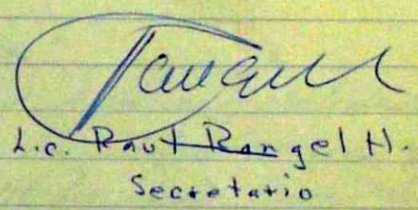 L.c. Raul Rangel H.
Secretario